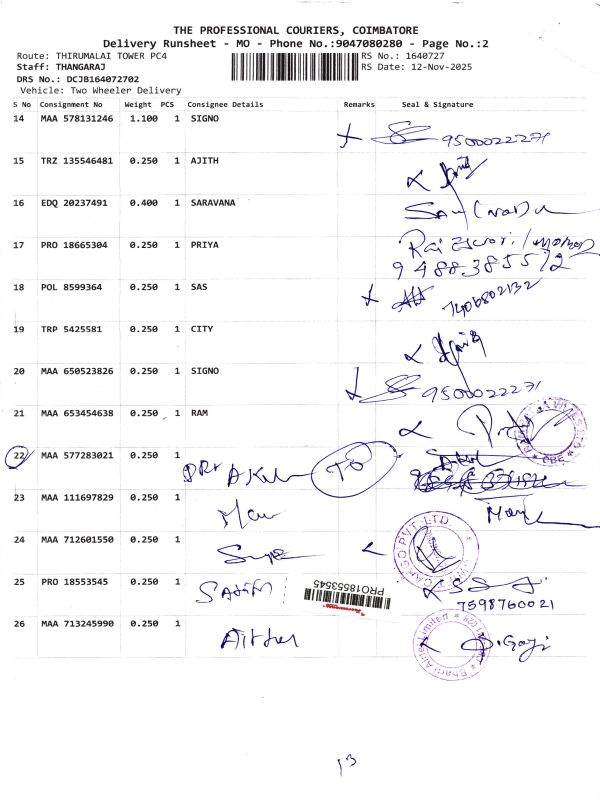 THE PROFESSIONAL COURIERS, COIMBATORE
Delivery Runsheet - MO - Phone No.:9047080280 - Page No.:2
Route: THIRUMALAI TOWER PC4 RS No.: 1640727
Staff: THANGARAJ RS Date: 12-Nov-2025
DRS No.: DCJB164072702
Vehicle: Two Wheeler Delivery
S No Consignment No Weight PCS Consignee Details Remarks Seal & Signature
14 MAA 578131246 1.100 1 SIGNO
9500022271
15 TRZ 135546481 0.250 1 AJITH
16 EDQ 20237491 0.400 1 SARAVANA
17 PRO 18665304 0.250 1 PRIYA
9488385572
18 POL 8599364 0.250 1 SAS
7406802132
19 TRP 5425581 0.250 1 CITY
20 MAA 650523826 0.250 1 SIGNO
9500022271
21 MAA 653454638 0.250 1 RAM
22 MAA 577283021 0.250 1
23 MAA 111697829 0.250 1
24 MAA 712601550 0.250 1
25 PRO 18553545 0.250 1
PRO18553545
7598760021
26 MAA 713245990 0.250 1
13